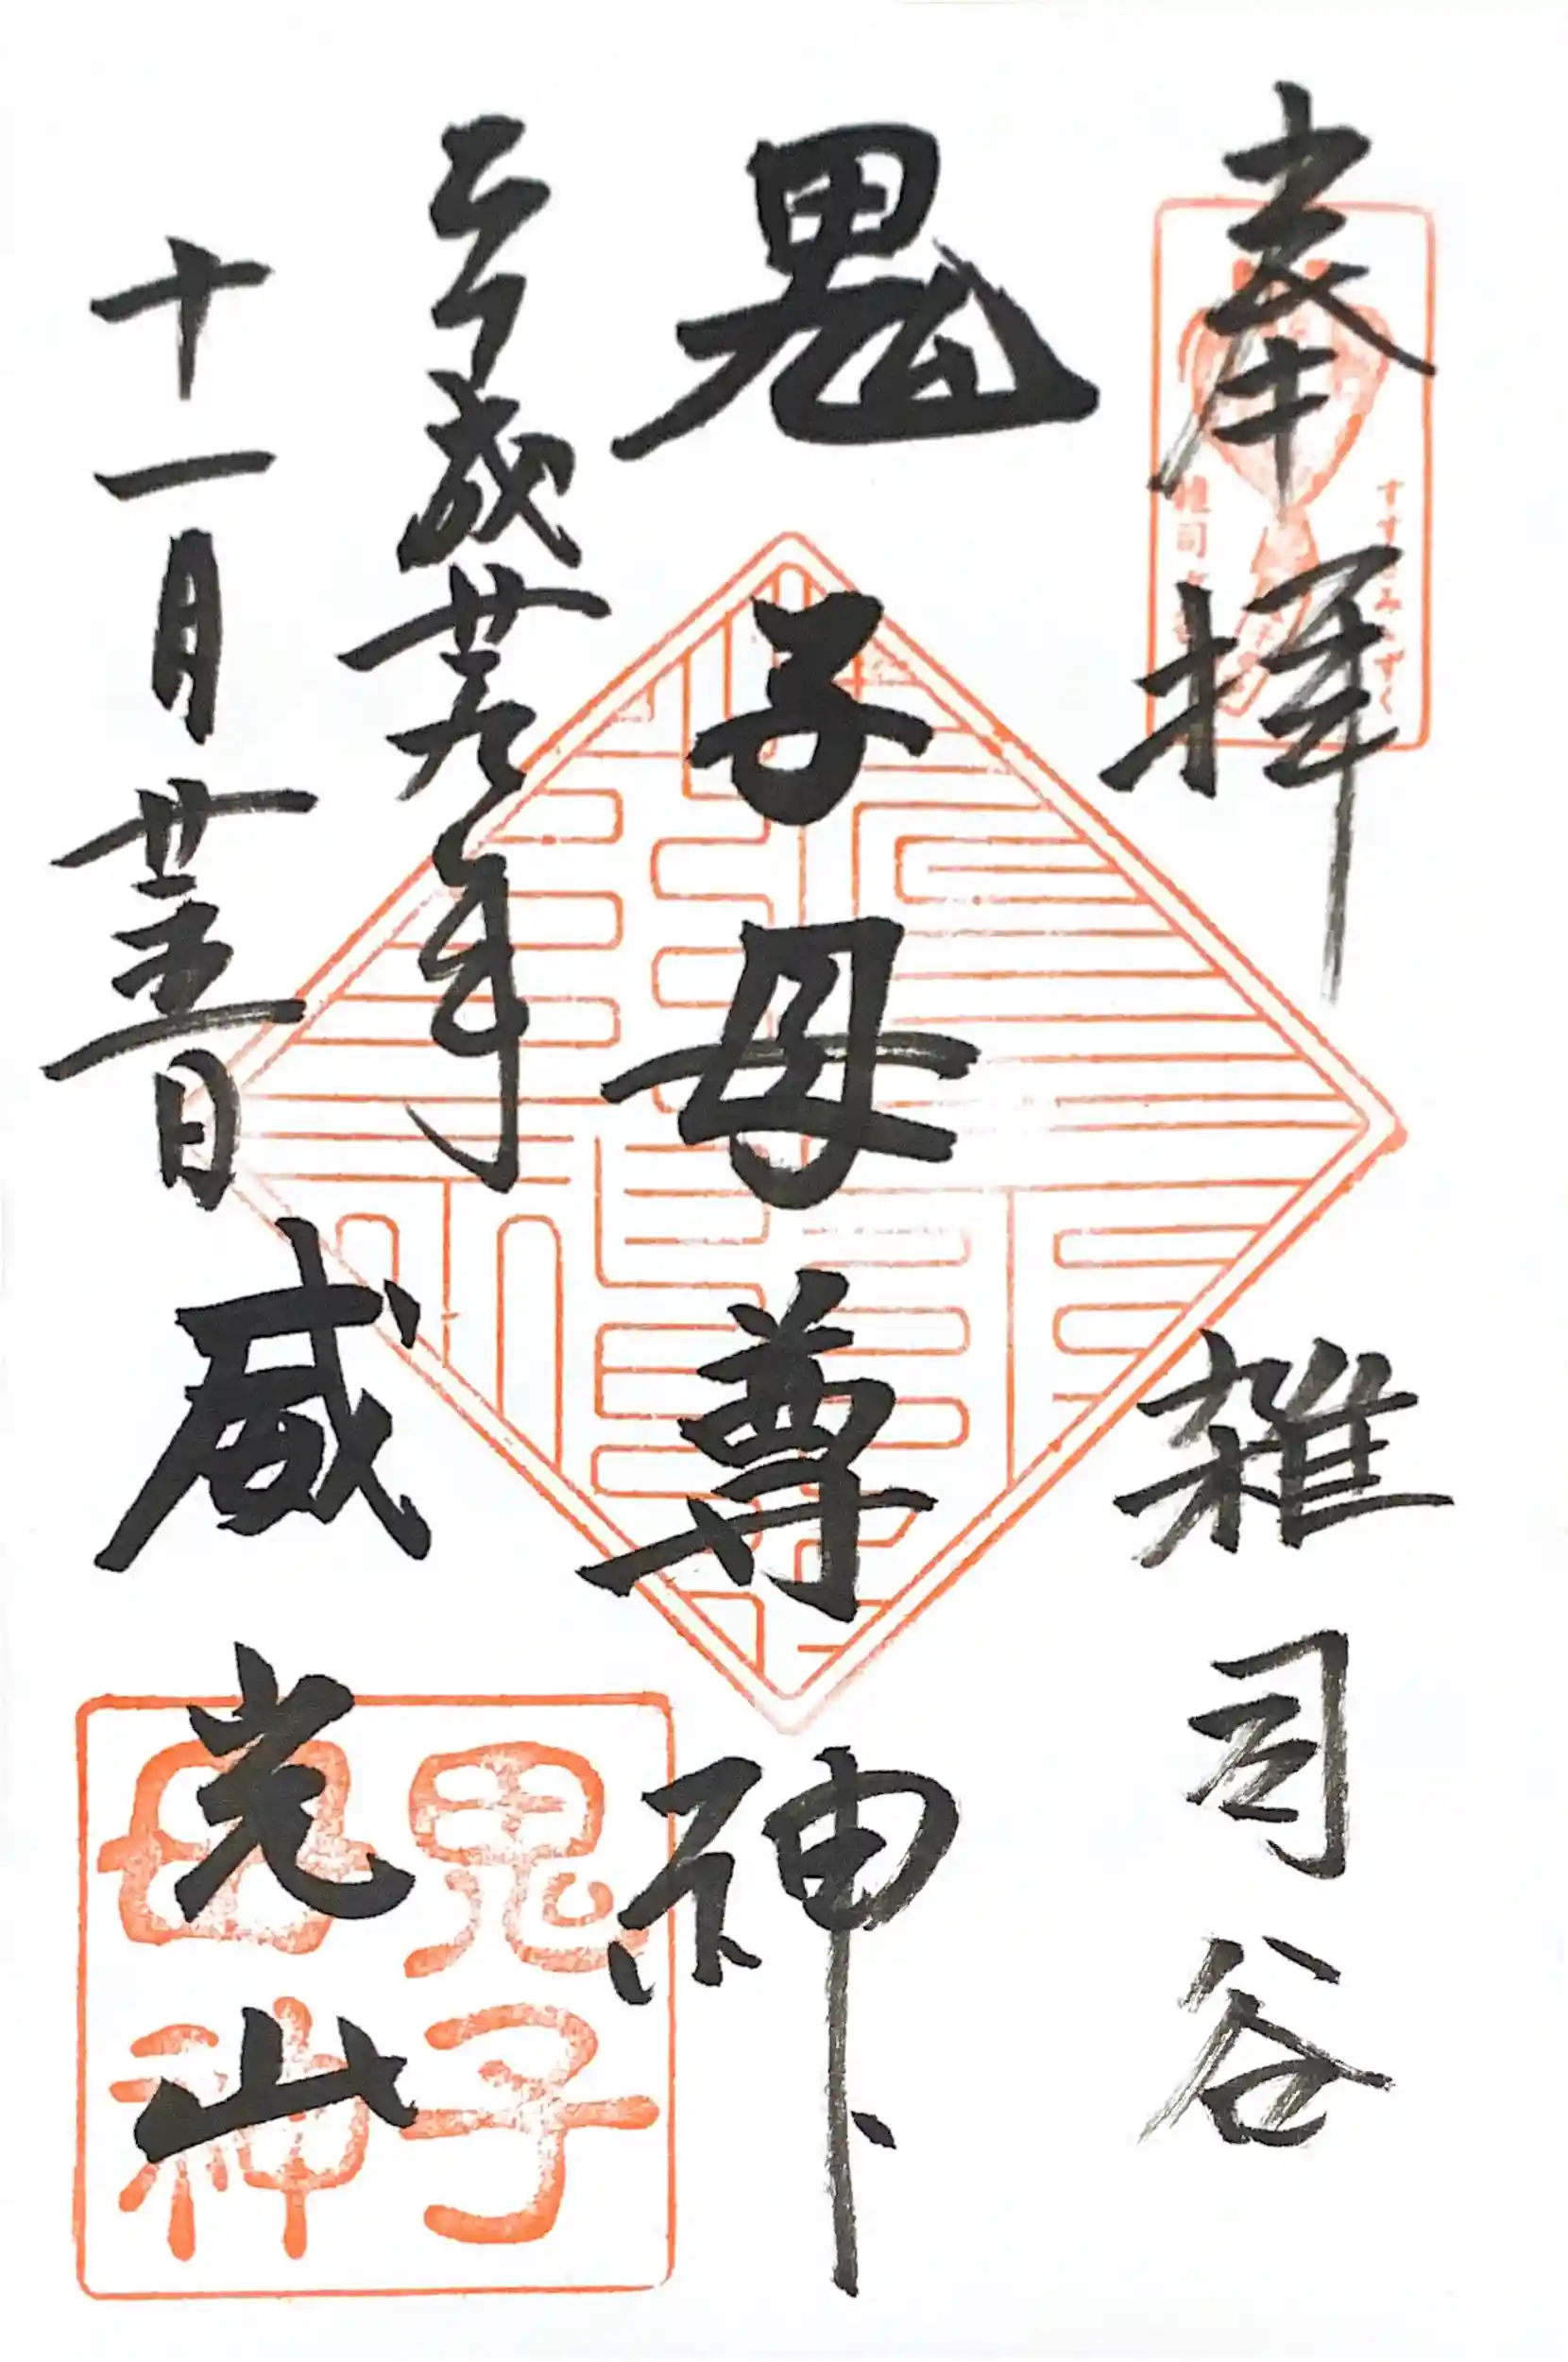 奉拝
雑司谷
すすきみみずく
鬼子母尊神
平成廿九年
十一月廿五日
威光山
鬼子
母神